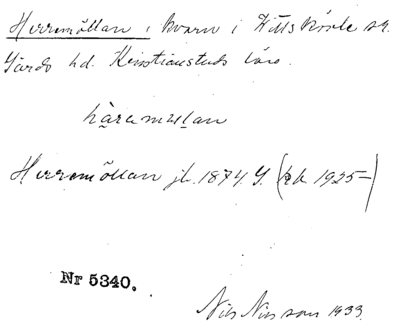 Herremöllan, kvarn i Vittskövle sn.
Gärds hd. Kristianstads län.
hæramulan
Herremöllan jb. 1874 Y. (rb 1925–)
Nr 5340.
Nils Nilsson 1933.